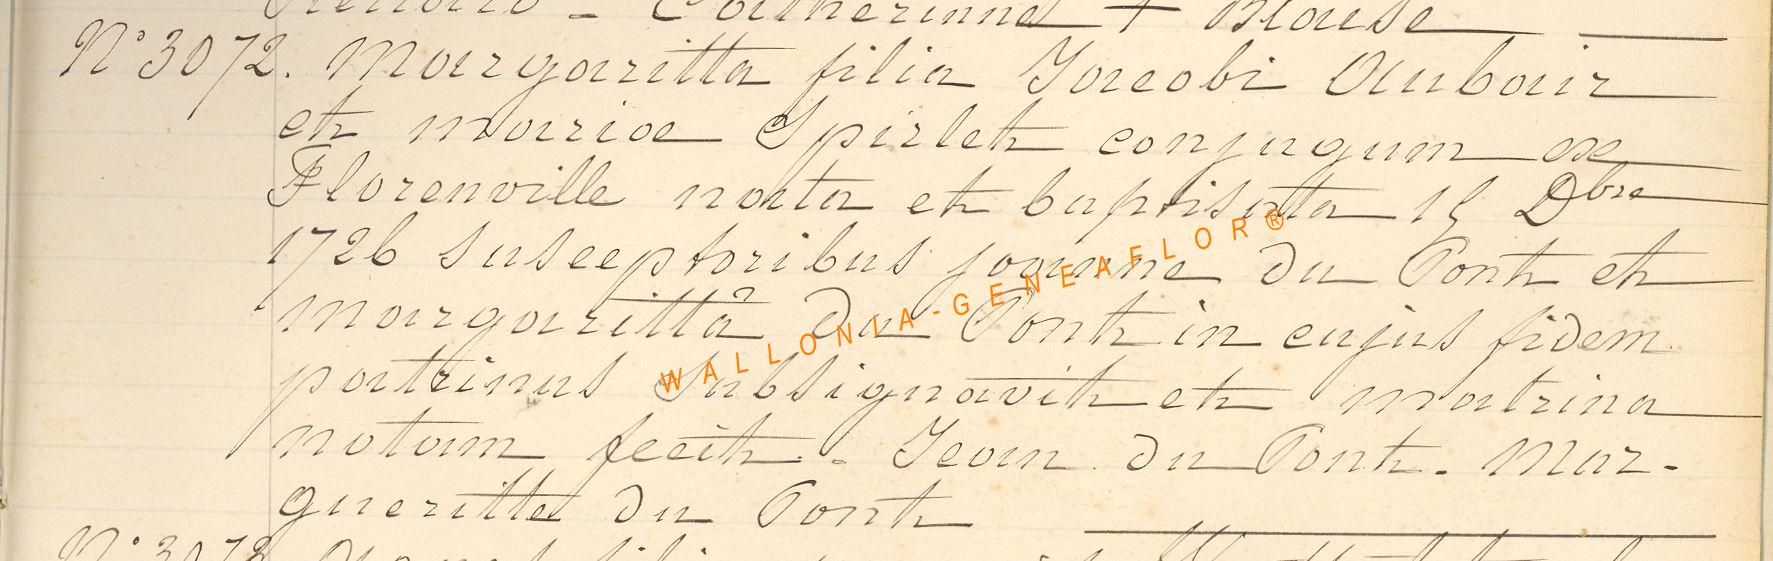 Catherinne + Blaise
N° 3072. Margaritta filia Jacobi Aubair
et mariae Spirlet conjugum ex
Florenville nata et baptisatta 15 Dbre
1726 susceptoribus joannne du Pont et
margaritta du Pont in cujus fidem
patrinus subsignavit et matrina
notam fecit. - Jean du Pont. Mar-
gueritte du Pont
WALLONIA-GENEAFLOR®
N° 3073